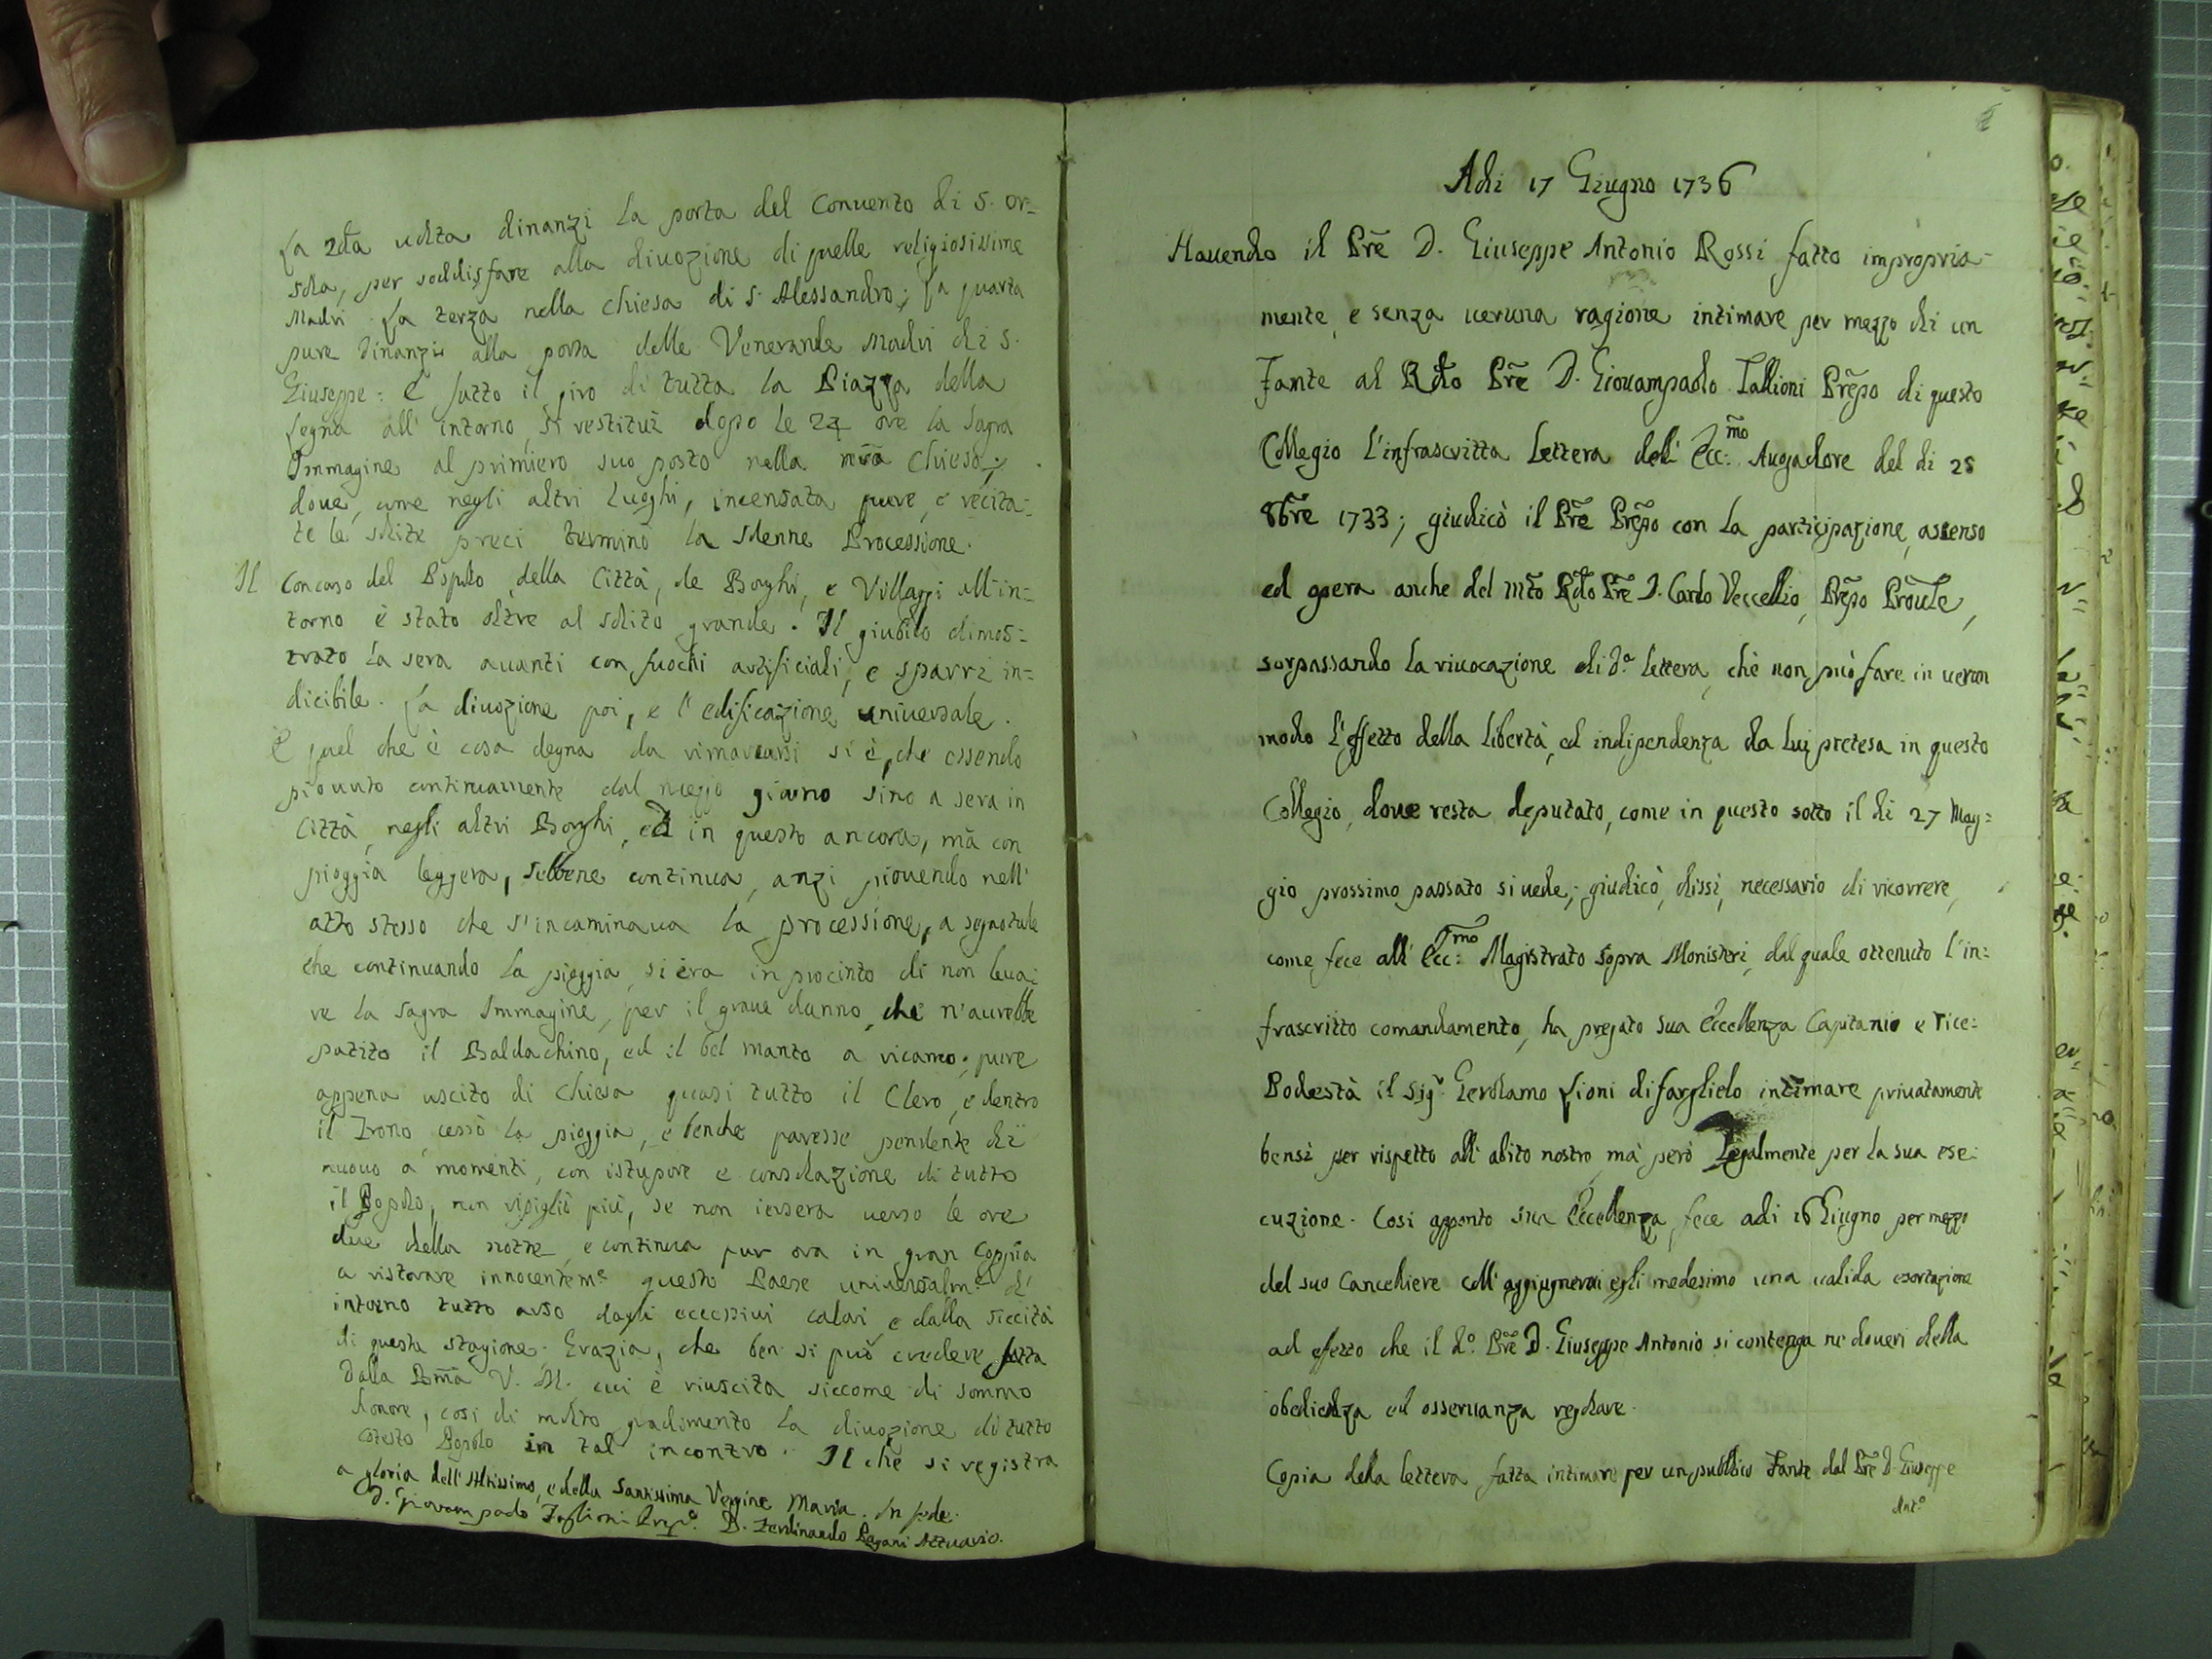 La 2da uolta dinanzi la porta del Conuento di S. Or=
sola, per soddisfare alla diuozione di quelle religiosissime
Madri. La terza nella Chiesa di S. Alessandro; La quarta
pure dinanzi alla porta delle Venerande Madri di S.
Giuseppe: E fatto il giro di tutta la Piazza della
Legna all' intorno, si restituì dopo le 24 ore la Sagra
Immagine al primiero suo posto nella nrã Chiesa;
doue, come negli altri Luoghi, incensata pure, e recita=
te le solite preci terminò la Solenne Processione.
Il Concorso del Popolo della Città, de Borghi, e Villaggi all'in=
torno è stato oltre al solito grande. Il giubilo dimos=
trato la sera auanti con fuochi artificiali, e sparri in=
dicibile. La diuozione poi, e l'edificazione uniuersale.
E quel che è cosa degna da rimarcarsi si è, che essendo
piouuto continuamente dal mezzo giorno sino a sera in
Città, negli altri Borghi, ed in questo ancora, mà con
pioggia leggera, sebbene continua, anzi piouendo nell'
atto stesso che s'incaminaua la processione, a segno tale
che continuando la pioggia, si era in procinto di non leua=
re la sagra Immagine, per il graue danno, che n'aurebbe
patito il Baldachino, ed il bel manto a ricamo; pure
appena uscito di Chiesa quasi tutto il Clero, e dentro
il Trono, cessò la pioggia, e benche paresse pendente di
nuouo a momenti, con istupore e consolazione di tutto
il Popolo, non ripigliò più, se non iersera uerso le ore
due della notte, e continua pur ora in gran Coppia
a ristorare innocentem.e questo Paese uniuersalm.e d'
intorno tutto arso dagli eccessiui calori, e dalla siccità
di questa stagione. Grazia, che ben si può credere fatta
dalla Bmã V. M. cui è riuscita siccome di sommo
honore, cosi di molto gradimento la diuozione di tutto
cotesto Popolo in tal incontro. Il chè si registra
a gloria dell'Altissimo, e della Santissima Vergine Maria. In fede.
D. Giovampaolo Taglioni Prep.o D. Ferdinando Pagani Attuario.
Adi 17 Giugno 1736
Hauendo il Prẽ D. Giuseppe Antonio Rossi fatto impropria-
mente, e senza ueruna ragione intimare per mezzo di un
Fante al Rdo Prẽ D. Giouampaolo Tallioni Prẽpo di questo
Collegio l'infrascritta Lettera dell' Ecc:mo Augadore del di 28
8bre 1733; giudicò il Prẽ Prẽpo con la participazione, assenso
ed opera anche del mto Rdo Prẽ D. Carlo Veccellio, Prẽpo Proule,
sorpassando la riuocazione di d.a lettera, chè non può fare in uerun
modo l'effetto della libertà, ed indipendenza da lui pretesa in questo
Collegio, doue resta deputato, come in questo sotto il di 27 Mag=
gio prossimo passato si uede; giudicò, dissi, necessario di ricorrere,
come fece all' Ecc:mo Magistrato sopra Monisteri, dal quale ottenuto l'in=
frascritto comandamento, ha pregato sua Eccellenza Capitanio e Vice=
Podestà il Sig.r Gerolamo Lioni di farglielo intimare priuatamente
bensì per rispetto all' abito nostro, mà però Legalmente per la sua ese=
cuzione. Cosi apponto sua Eccellenza fece adi 16 Giugno per mezzo
del suo Cancelliere coll' aggiugnerui egli medesimo una ualida esortazione
ad efetto che il d.o Prẽ D. Giuseppe Antonio si contenga ne doueri della
obedienza ed osseruanza regolare.
Copia della lettera fatta intimare per un pubblico Fante dal Prẽ D. Giuseppe
Ant.o